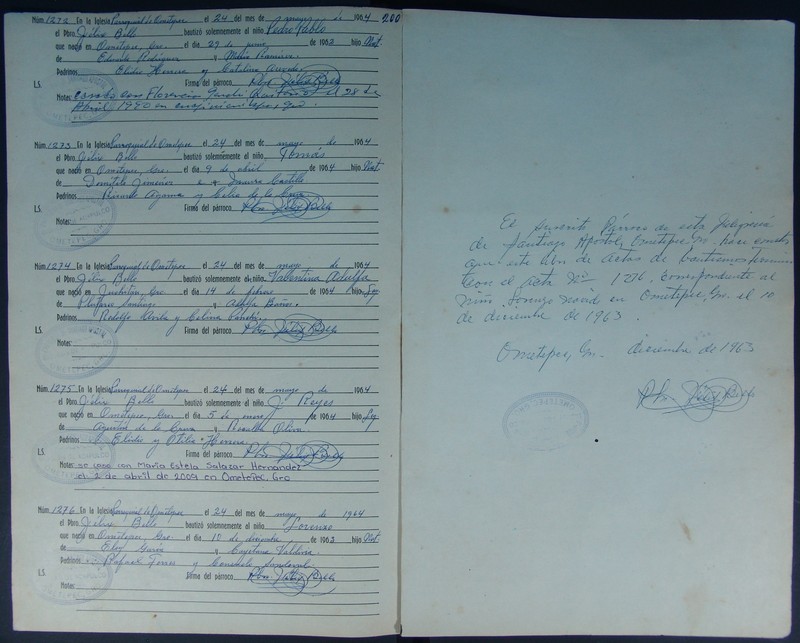 200
Núm. 1272 En la Iglesia Parroquial de Ometepec el 24 del mes de mayo de 1964
el Pbro. Félix Bello bautizó solemnemente al niño Pedro Pablo
que nació en Ometepec, Gro. el día 29 de junio 1963 hijo Nat.
de Eduardo Rodríguez y María Ramírez
Padrinos Elidio Herrera y Catalina
L.S. Firma del párroco Pbro. Félix Bello
Notas: casado con Florencia el 28 de
Abril 1980 en Gro.
Núm. 1273 En la Iglesia Parroquial de Ometepec el 24 del mes de mayo de 1964
el Pbro. Félix Bello bautizó solemnemente al niño Tomás
que nació en Ometepec, Gro. el día 9 de abril 1964 hijo Nat.
de Jiménez y Castillo
Padrinos y Celia de la Cruz
L.S. Firma del párroco Pbro. Félix Bello
Notas:
Núm. 1274 En la Iglesia Parroquial de Ometepec el 24 del mes de mayo de 1964
el Pbro. Félix Bello bautizó solemnemente al niño Valentina Adulfa
que nació en Gro. el día 14 de febrero 1964 hijo Leg.
de Santiago y Adulfa Baños
Padrinos Rodolfo Avila y Celina
L.S. Firma del párroco Pbro. Félix Bello
Notas:
Núm. 1275 En la Iglesia Parroquial de Ometepec el 24 del mes de mayo de 1964
el Pbro. Félix Bello bautizó solemnemente al niño J. Reyes
que nació en Ometepec, Gro. el día 5 de enero de 1964 hijo Leg.
de Agustín de la Cruz y Rosalba Oliva
Padrinos Elidio y Otilia Herrera
L.S. Firma del párroco Pbro. Félix Bello
Notas: se caso con Maria Estela Salazar Hernandez
el 2 de abril de 2009 en Ometepec Gro
Núm. 1276 En la Iglesia Parroquial de Ometepec el 24 del mes de mayo de 1964
el Pbro. Félix Bello bautizó solemnemente al niño Lorenzo
que nació en Ometepec, Gro. el día 10 de diciembre de 1963 hijo Nat.
de Eloy García y Cayetana Valdivia
Padrinos Rafael Torres y Consuelo Sandoval
L.S. Firma del párroco Pbro. Félix Bello
Notas:
El presente Párroco de esta feligresía
de Santiago Apostol, Ometepec, Gro. hace constar
que este libro de actas de bautismos
con el acta No. 1276, correspondiente al
niño Lorenzo nacido en Ometepec, Gro. el 10
de diciembre de 1963
Ometepec, Gro. diciembre de 1963
Pbro. Félix Bello